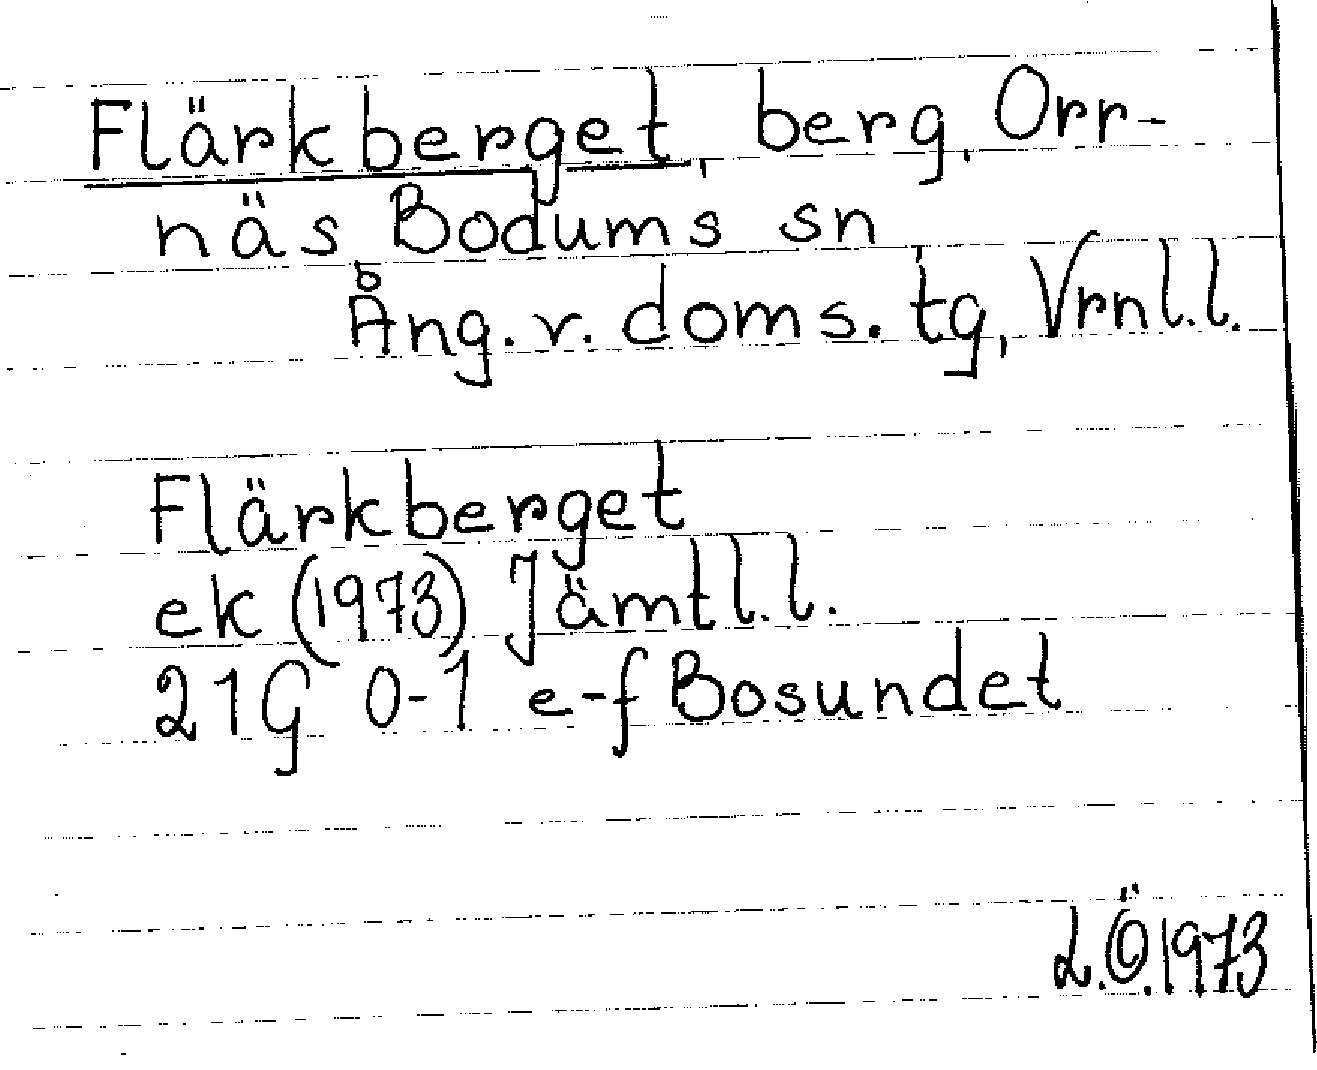 Flärkberget, berg, Orr-
näs Bodums sn,
Ång. v. doms. tg, Vrnl.l.
Flärkberget
ek (1973) Jämtl.l.
21G 0-1 e-f Bosundet
L.Ö.1973